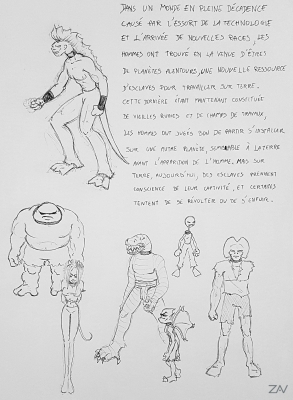 DANS UN MONDE EN PLEINE DÉCADENCE
CAUSÉ PAR L'ESSORT DE LA TECHNOLOGIE
ET L'ARRIVÉE DE NOUVELLES RACES, LES
HOMMES ONT TROUVÉ EN LA VENUE D'ÊTRES
DE PLANÈTES ALENTOURS, UNE NOUVELLE RESSOURCE
D'ESCLAVES POUR TRAVAILLER SUR TERRE.
CETTE DERNIÈRE ÉTANT MAINTENANT CONSTITUÉE
DE VIEILLES RUINES ET DE CHAMPS DE TRAVAUX,
LES HOMMES ONT JUGÉS BON DE PARTIR S'INSTALLER
SUR UNE AUTRE PLANÈTE, SEMBLABLE À LA TERRE
AVANT L'APPARITION DE L'HOMME. MAIS SUR
TERRE, AUJOURD'HUI, DES ESCLAVES PRENNENT
CONSCIENCE DE LEUR CAPTIVITÉ, ET CERTAINS
TENTENT DE SE RÉVOLTER OU DE S'ENFUIR.
ZAV